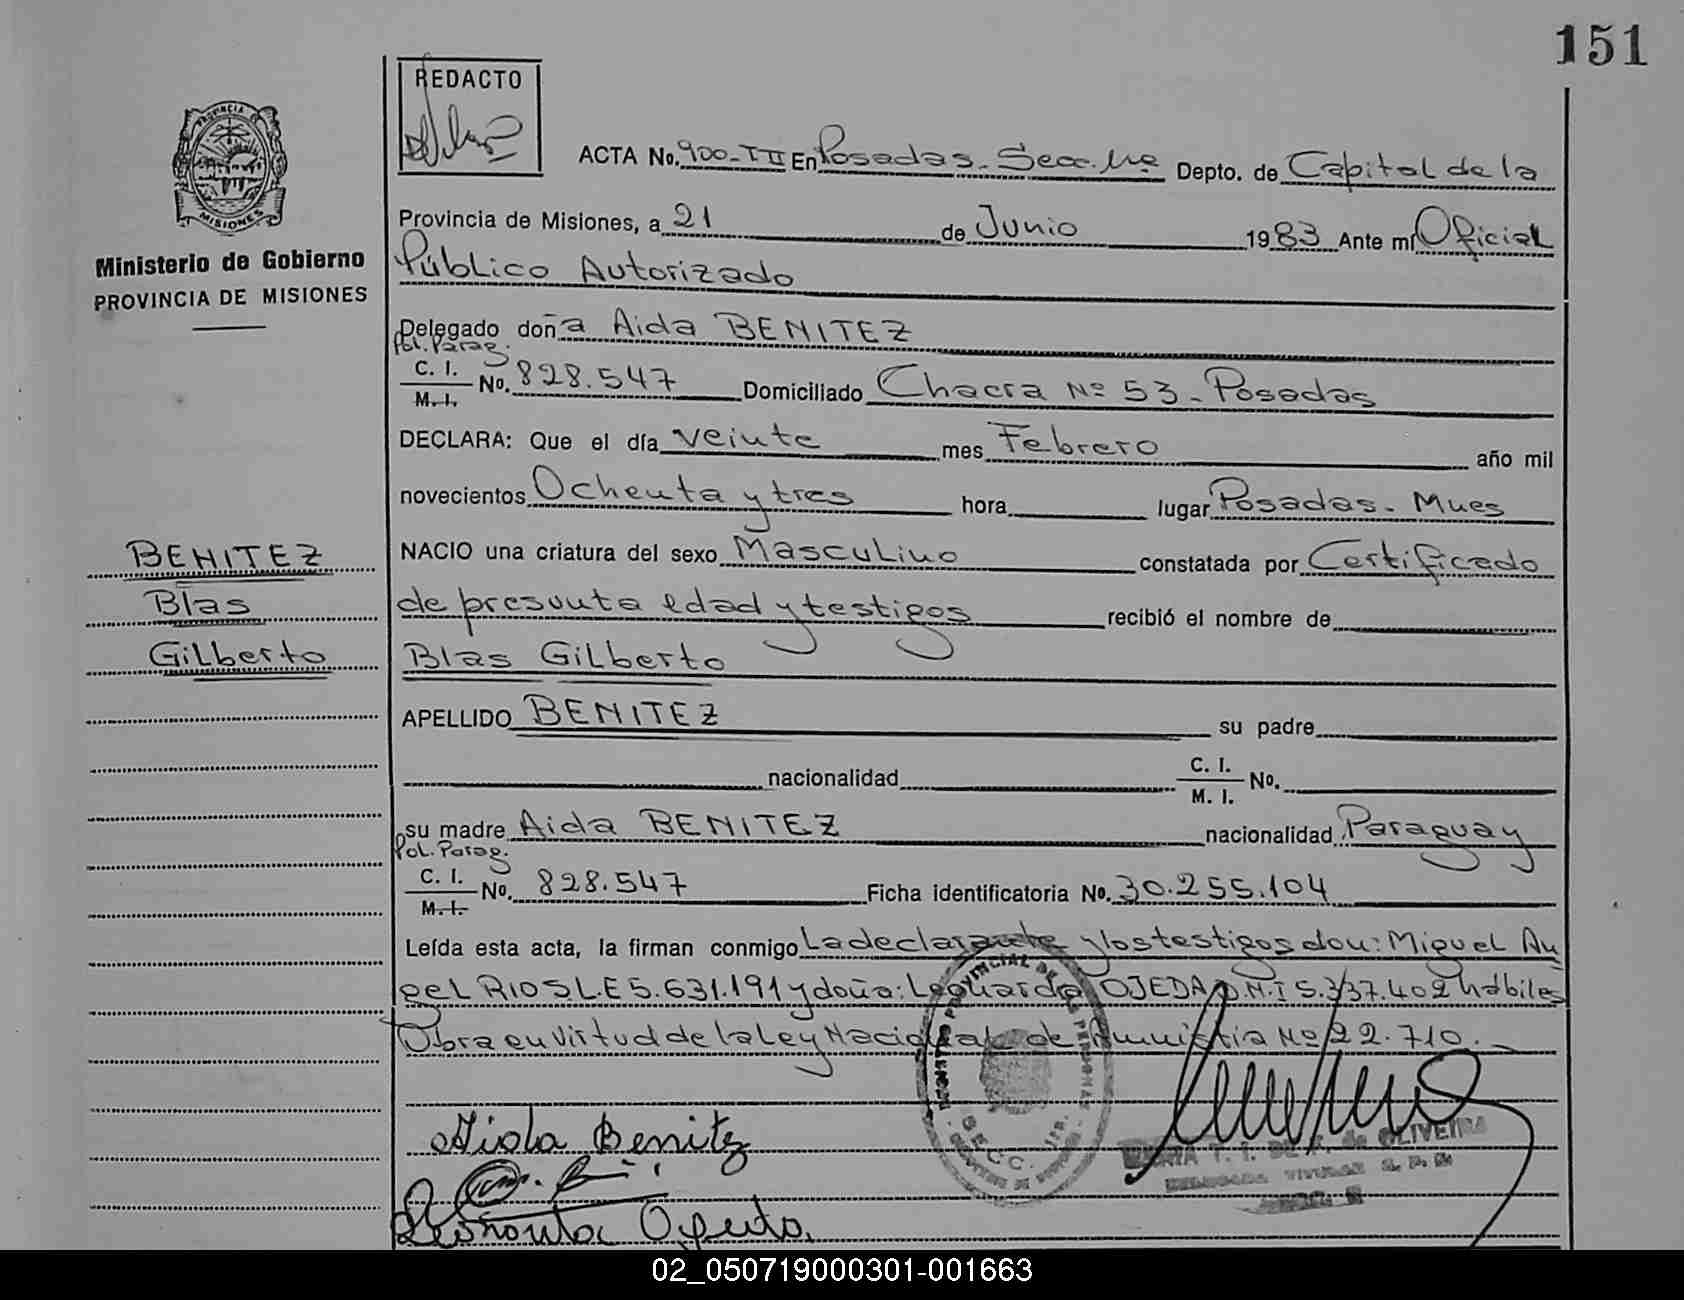 151
REDACTO
PROVINCIA DE
MISIONES
Ministerio de Gobierno
PROVINCIA DE MISIONES
ACTA No. 900-TII En Posadas. Secc. 1ra Depto. de Capital de la
Provincia de Misiones, a 21 de Junio 1983 Ante mí Oficial
Público Autorizado
Delegado doña Aida BENITEZ
Pol. Parag.
C. I.
M. I. No. 828.547 Domiciliado Chacra Nº 53 - Posadas
DECLARA: Que el día veinte mes Febrero año mil
novecientos Ochenta y tres hora lugar Posadas. Mnes
NACIO una criatura del sexo Masculino constatada por Certificado
de presunta edad y testigos recibió el nombre de
Blas Gilberto
APELLIDO BENITEZ su padre
nacionalidad C. I.
M. I. No.
su madre Aida BENITEZ nacionalidad Paraguay
Pol. Parag.
C. I.
M. I. No. 828.547 Ficha identificatoria No. 30.255.104
Leída esta acta, la firman conmigo La declarante y los testigos don: Miguel An
gel RIOS L.E 5.631.191 y doña: Leonarda OJEDA D.N.I 5.337.402 hábiles
Obra en virtud de la Ley Nacional de Amnistia Nº 22.710.
BENITEZ
Blas
Gilberto
Aida Benitez
Leonarda Ojeda
REGISTRO PROVINCIAL DE LAS PERSONAS
de OLIVEIRA
02_050719000301-001663